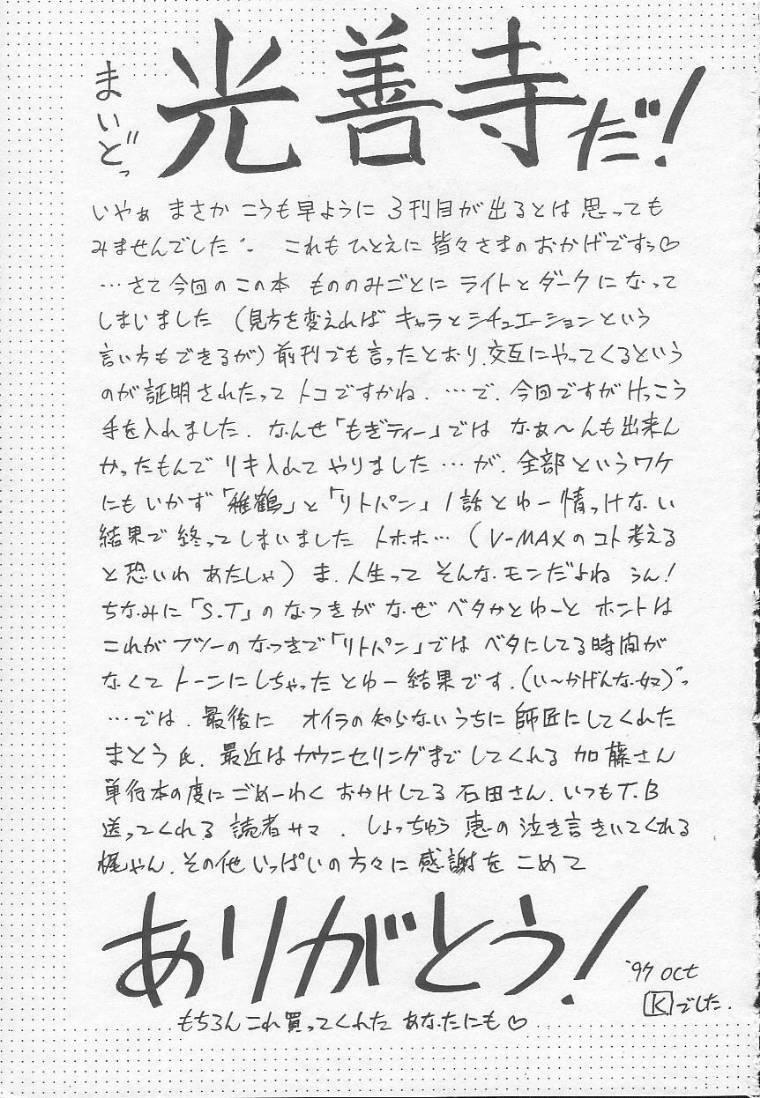 まいどっ 光善寺だ!
いやぁ まさか こうも早ように 3刊目が出るとは 思っても
みませんでした これもひとえに 皆々さまのおかげですぅ♡
…さて今回のこの本 もののみごとに ライトとダークになって
しまいました (見方を変えれば キャラとシチュエーションという
言い方もできるが) 前刊でも言ったとおり、交互にやってくるという
のが証明されたって トコですかね. …で. 今回ですがけっこう
手を入れました. なんせ「もぎティー」では なぁ〜んも出来ん
かったもんで リキ入れて やりました…が. 全部というワケ
にもいかず「雅鶴」と「リトパン」1話とゆー情っけない
結果で 終ってしまいました トホホ… (V-MAXのコト考える
と恐いわ あたしゃ) ま. 人生って そんなモンだよね うん!
ちなみに「S.T」のなつきが なぜ ベタかとゆーと ホントは
これが フツーのなつきで「リトパン」では ベタにしてる時間が
なくて トーンにしちゃった とゆー結果です. (い〜かげんな奴)
…では. 最後に オイラの知らないうちに 師匠にしてくれた
まとう氏. 最近は カウンセリングまでしてくれる 加藤さん
単行本の度に ごめーわく おかけしてる 石田さん. いつもT.B
送ってくれる 読者サマ. しょっちゅう 恵の泣き言きいてくれる
梶やん. その他 いっぱいの方々に 感謝を こめて
ありがとう!
'97 oct
Kでした.
もちろん これ買ってくれた あなたにも♡